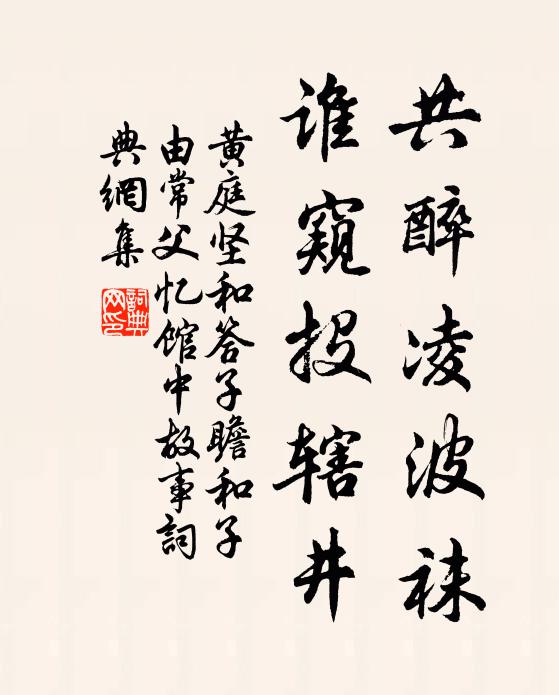 共醉凌波袜
谁窥投辖井
黄庭坚和答子瞻和子
由常父忆馆中故事詞
典網集
詞典
网印